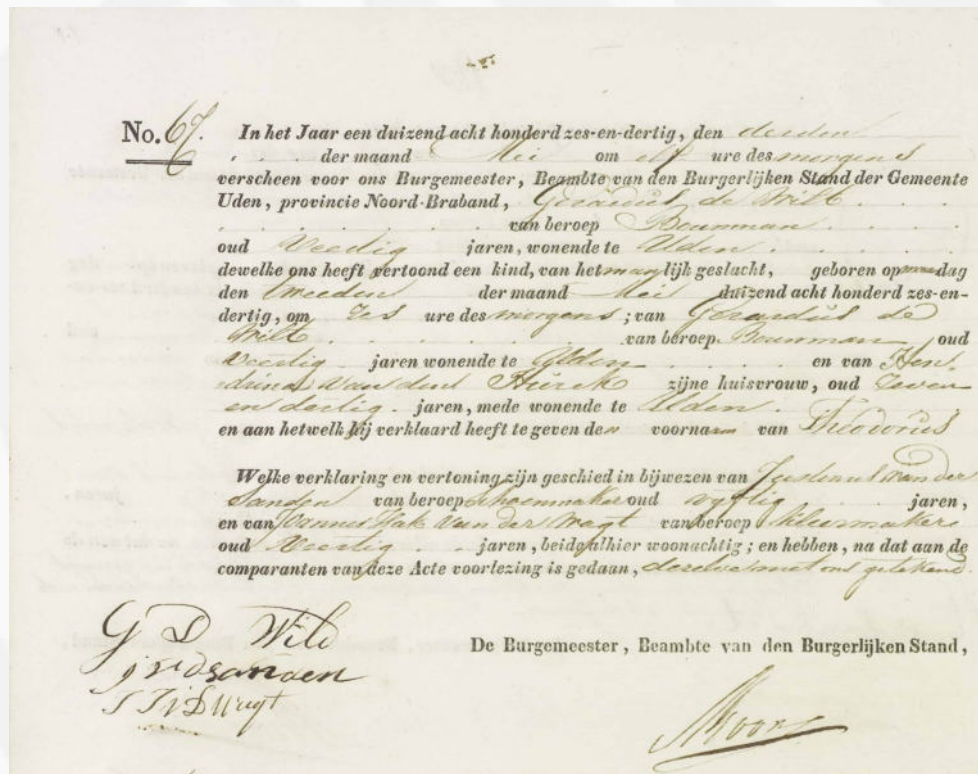 No. 67. In het Jaar een duizend acht honderd zes-en-dertig, den derden
der maand Mei om elf ure des morgens
verscheen voor ons Burgemeester, Beambte van den Burgerlijken Stand der Gemeente
Uden, provincie Noord-Braband, Gerardus de Wilt
van beroep Bouwman
oud Veertig jaren, wonende te Uden
dewelke ons heeft vertoond een kind, van het manlijk geslacht, geboren op maandag
den tweeden der maand Mei duizend acht honderd zes-en-
dertig, om zes ure des morgens; van Gerardus de
Wilt van beroep Bouwman oud
Veertig jaren wonende te Uden en van Hen-
drina van den Hurck zijne huisvrouw, oud Zeven
en dertig jaren, mede wonende te Uden.
en aan hetwelk hij verklaard heeft te geven den voornaam van Theodorus
Welke verklaring en vertoning zijn geschied in bijwezen van van der
Sanden van beroep Schoenmaker oud vyftig jaren,
en van van der Wagt van beroep kleermaker
oud Veertig jaren, beide alhier woonachtig; en hebben, na dat aan de
comparanten van deze Acte voorlezing is gedaan, dezelve met ons getekend.
G D Wild
De Burgemeester, Beambte van den Burgerlijken Stand,